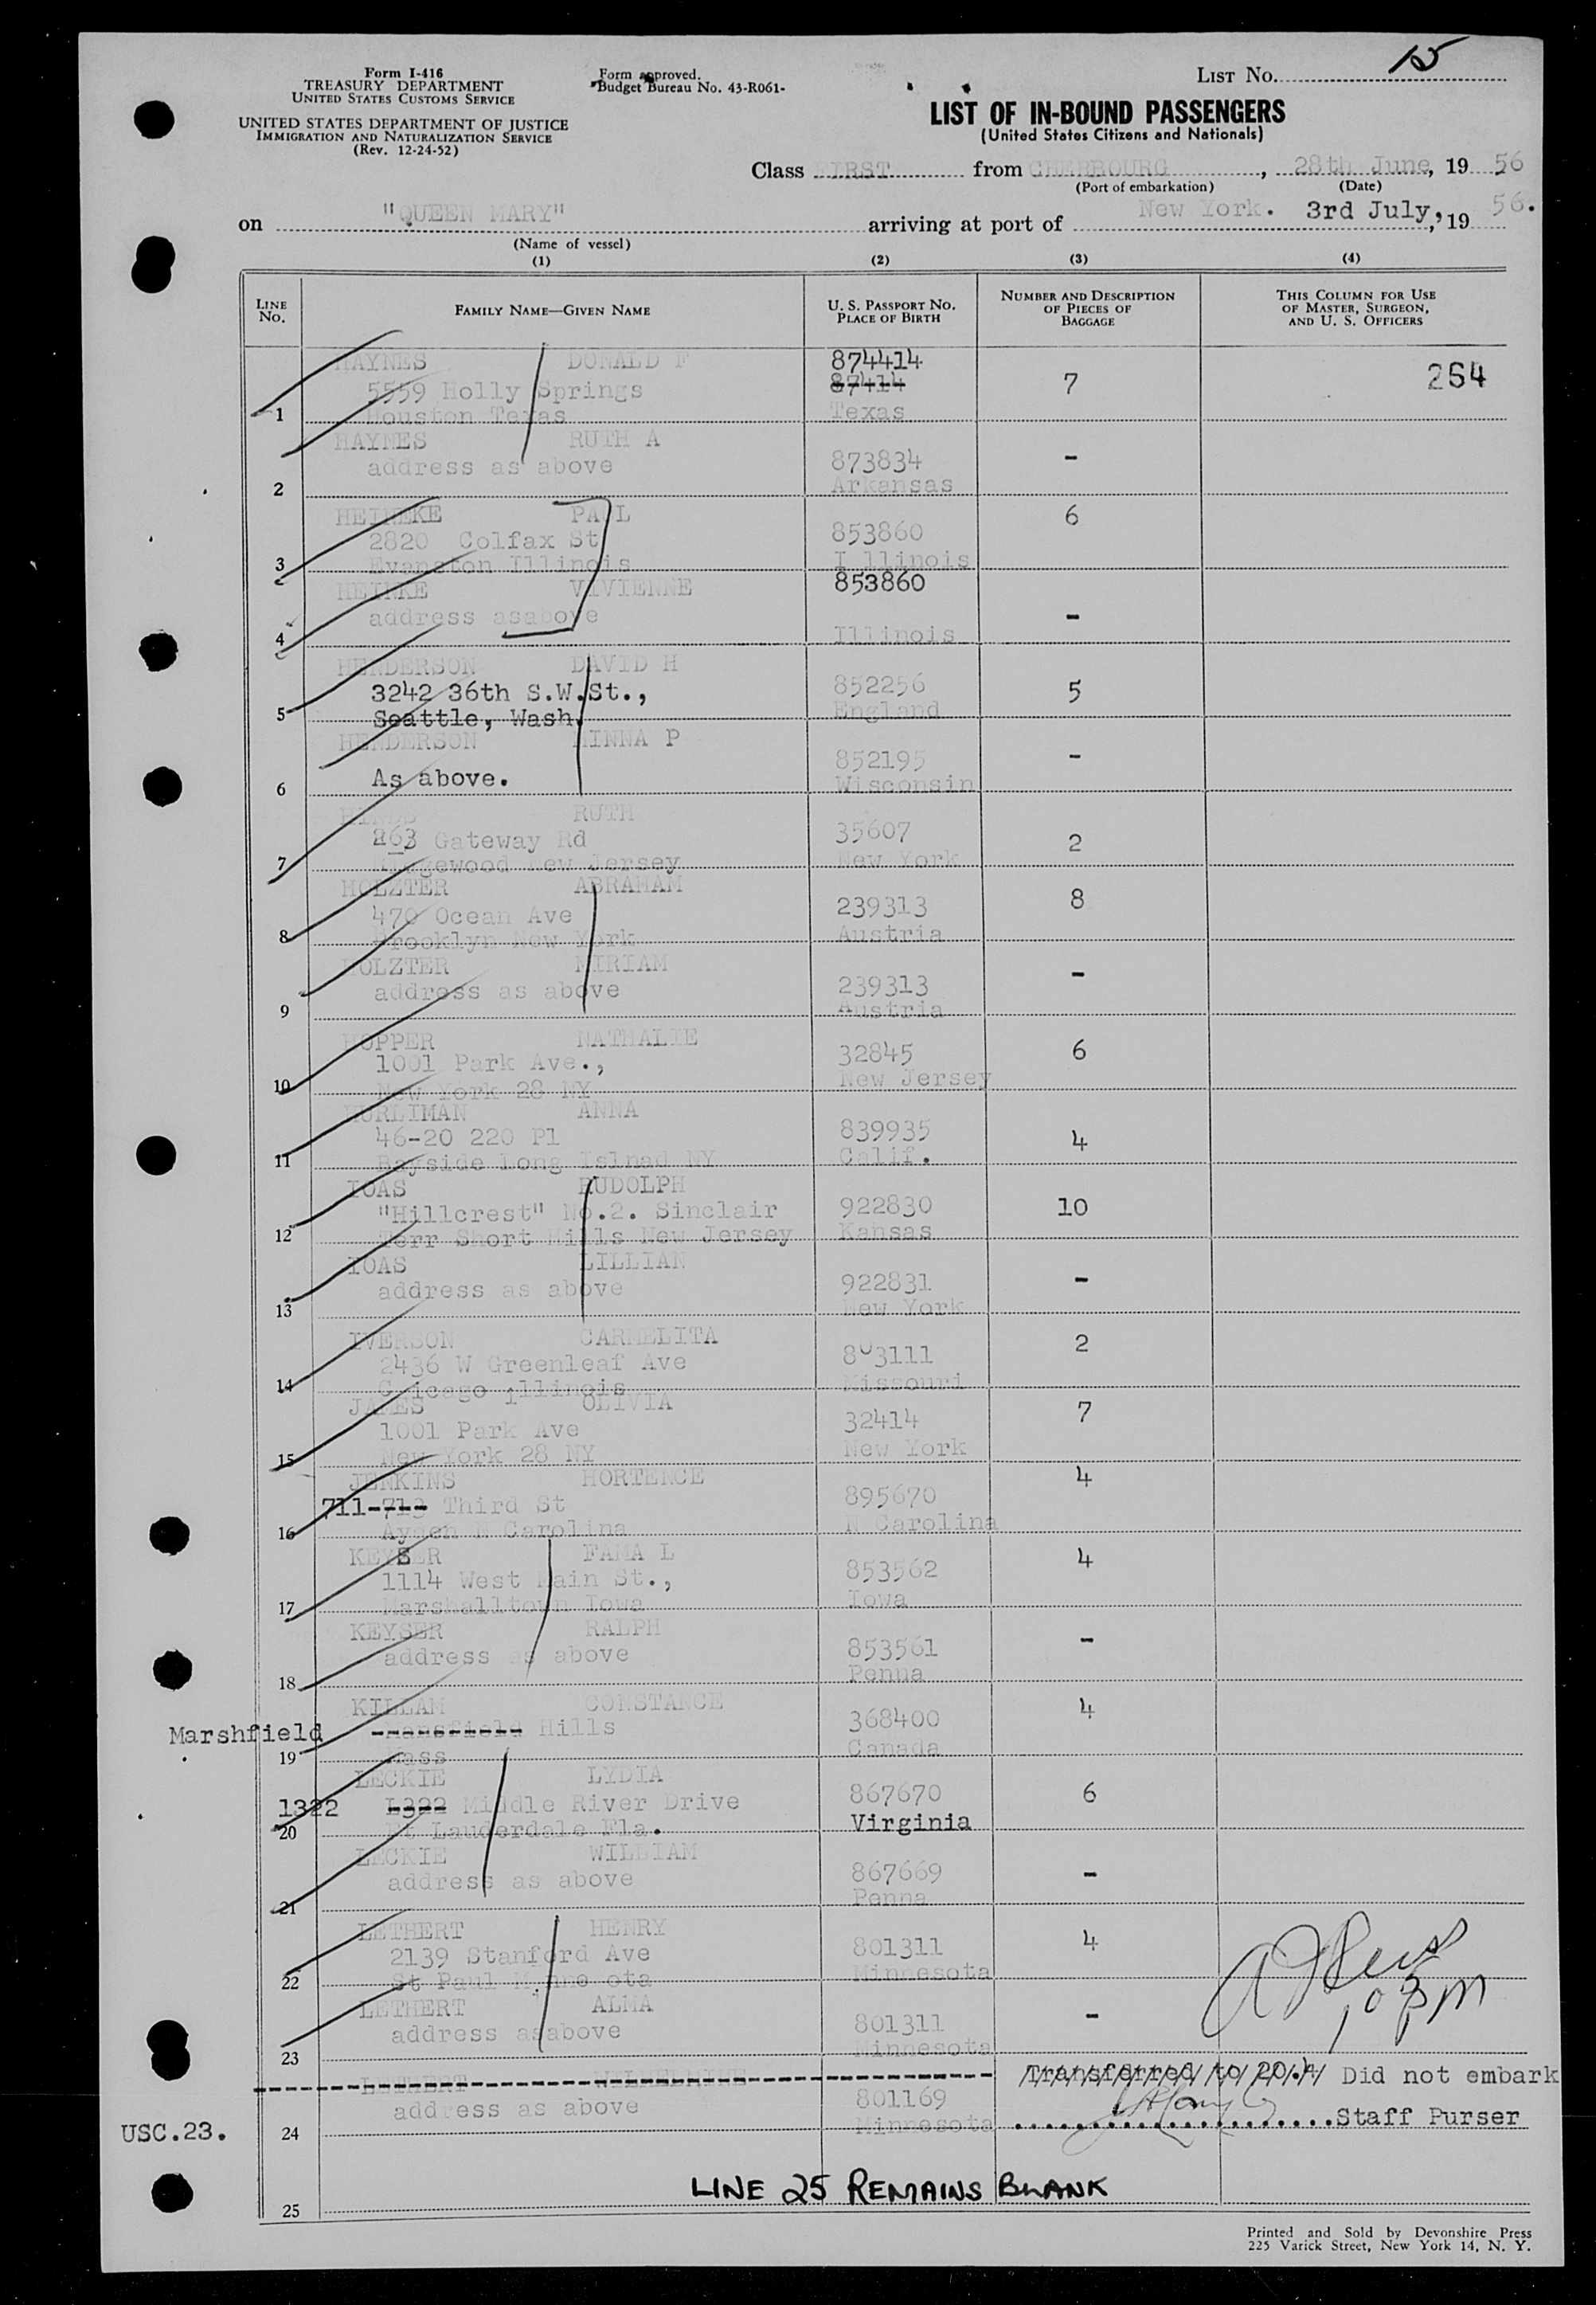 Form I-416
TREASURY DEPARTMENT
UNITED STATES CUSTOMS SERVICE
UNITED STATES DEPARTMENT OF JUSTICE
IMMIGRATION AND NATURALIZATION SERVICE
(Rev. 12-24-52)
Form approved.
Budget Bureau No. 43-R061-
LIST No. 15
LIST OF IN-BOUND PASSENGERS
(United States Citizens and Nationals)
Class FIRST from CHERBOURG, 28th June, 19 56
(Port of embarkation) (Date)
on "QUEEN MARY" arriving at port of New York. 3rd July, 19 56.
(Name of vessel)
(1) (2) (3) (4)
LINE No. FAMILY NAME—GIVEN NAME U. S. PASSPORT NO. PLACE OF BIRTH NUMBER AND DESCRIPTION OF PIECES OF BAGGAGE THIS COLUMN FOR USE OF MASTER, SURGEON, AND U. S. OFFICERS
HAYNES DONALD F 874414
5559 Holly Springs 87414 7 264
1 Houston Texas Texas
HAYNES RUTH A
address as above 873834 -
2 Arkansas
HEINEKE PAUL 6
2820 Colfax St 853860
3 Evanston Illinois I llinois
HEINKE VIVIENNE 853860
address asabove -
4 Illinois
HENDERSON DAVID H
3242 36th S.W.St., 852256 5
5 Seattle, Wash. England
HENDERSON MINNA P
852195 -
6 As above. Wisconsin
RUTH
263 Gateway Rd 35607 2
7 Ridgewood New Jersey New York
HOLZTER ABRAHAM
470 Ocean Ave 239313 8
8 Brooklyn New York Austria
HOLZTER MIRIAM
address as above 239313 -
9 Austria
HOPPER NATHALIE
1001 Park Ave., 32845 6
10 New York 28 NY New Jersey
HURLIMAN ANNA
46-20 220 Pl 839935 4
11 Bayside Long Islnad NY Calif.
IOAS RUDOLPH
"Hillcrest" No.2. Sinclair 922830 10
12 Terr Short Hills New Jersey Kansas
IOAS LILLIAN
address as above 922831 -
13 New York
IVERSON CARMELITA
2436 W Greenleaf Ave 803111 2
14 Chicago Illinois Missouri
JAMES OLIVIA
1001 Park Ave 32414 7
15 New York 28 NY New York
JENKINS HORTENCE 4
711-713 Third St 895670
16 Ayden N Carolina N Carolina
KEYSER FAMA L
1114 West Main St., 853562 4
17 Marshalltown Iowa Iowa
KEYSER RALPH
address as above 853561 -
18 Penna
KILLAM CONSTANCE
Marshfield Mansfield Hills 368400 4
19 Mass Canada
LECKIE LYDIA
1322 L322 Middle River Drive 867670 6
20 Ft Lauderdale Fla. Virginia
LECKIE WILLIAM
address as above 867669 -
21 Penna
LETHERT HENRY
2139 Stanford Ave 801311 4
22 St Paul Minnesota Minnesota
LETHERT ALMA
address asabove 801311 -
23 Minnesota
LETHERT WILHELMINE Transferred to 20.4 Did not embark
address as above 801169
USC.23. 24 Minnesota Staff Purser
LINE 25 REMAINS BLANK
25
Printed and Sold by Devonshire Press
225 Varick Street, New York 14, N. Y.